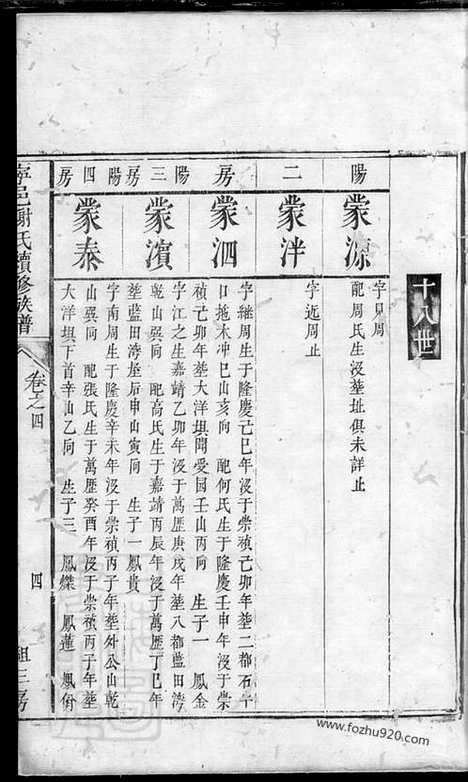 十八世
陽
蒙源
字貝周
配周氏生沒塟址俱未詳止
二
蒙泮
字近周止
房
蒙泗
字繼周生于隆慶己巳年沒于崇禎己卯年塟二都石
口拖木冲巳山亥向 配何氏生于隆慶壬申年沒于崇
禎己卯年塟大洋垻閗愛国壬山丙向 生子一 鳳金
陽三房
蒙濱
字江之生嘉靖乙卯年沒于萬歷庚戌年塟八都藍田湾
乾山巽向 配高氏生于嘉靖丙辰年沒于萬歷丁巳年
塟藍田湾垕后申山寅向 生子一鳳貴
陽四房
蒙泰
字南周生于隆慶辛未年沒于崇禎丙子年塟外公山乾
山巽向 配張氏生于萬歷癸酉年沒于崇禎丙子年塟
大洋垻下首辛山乙向 生子三 鳳燦 鳳蓮 鳳脩
寧邑謝氏續修族譜
卷之四
四
組三房
www.fozhu920.com